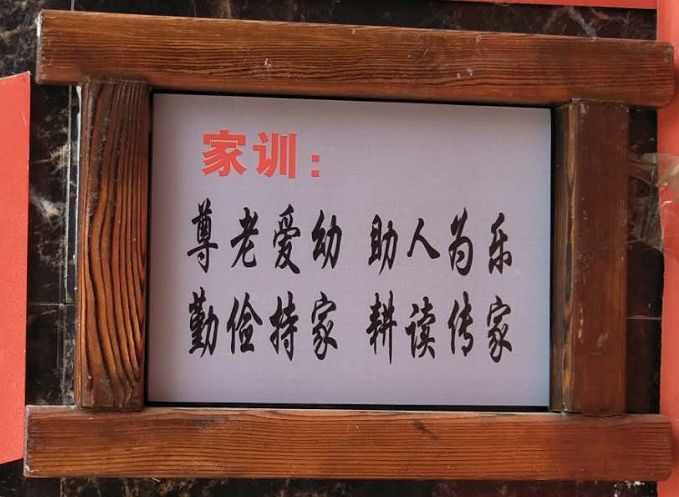 家训：
尊老爱幼 助人为乐
勤俭持家 耕读传家